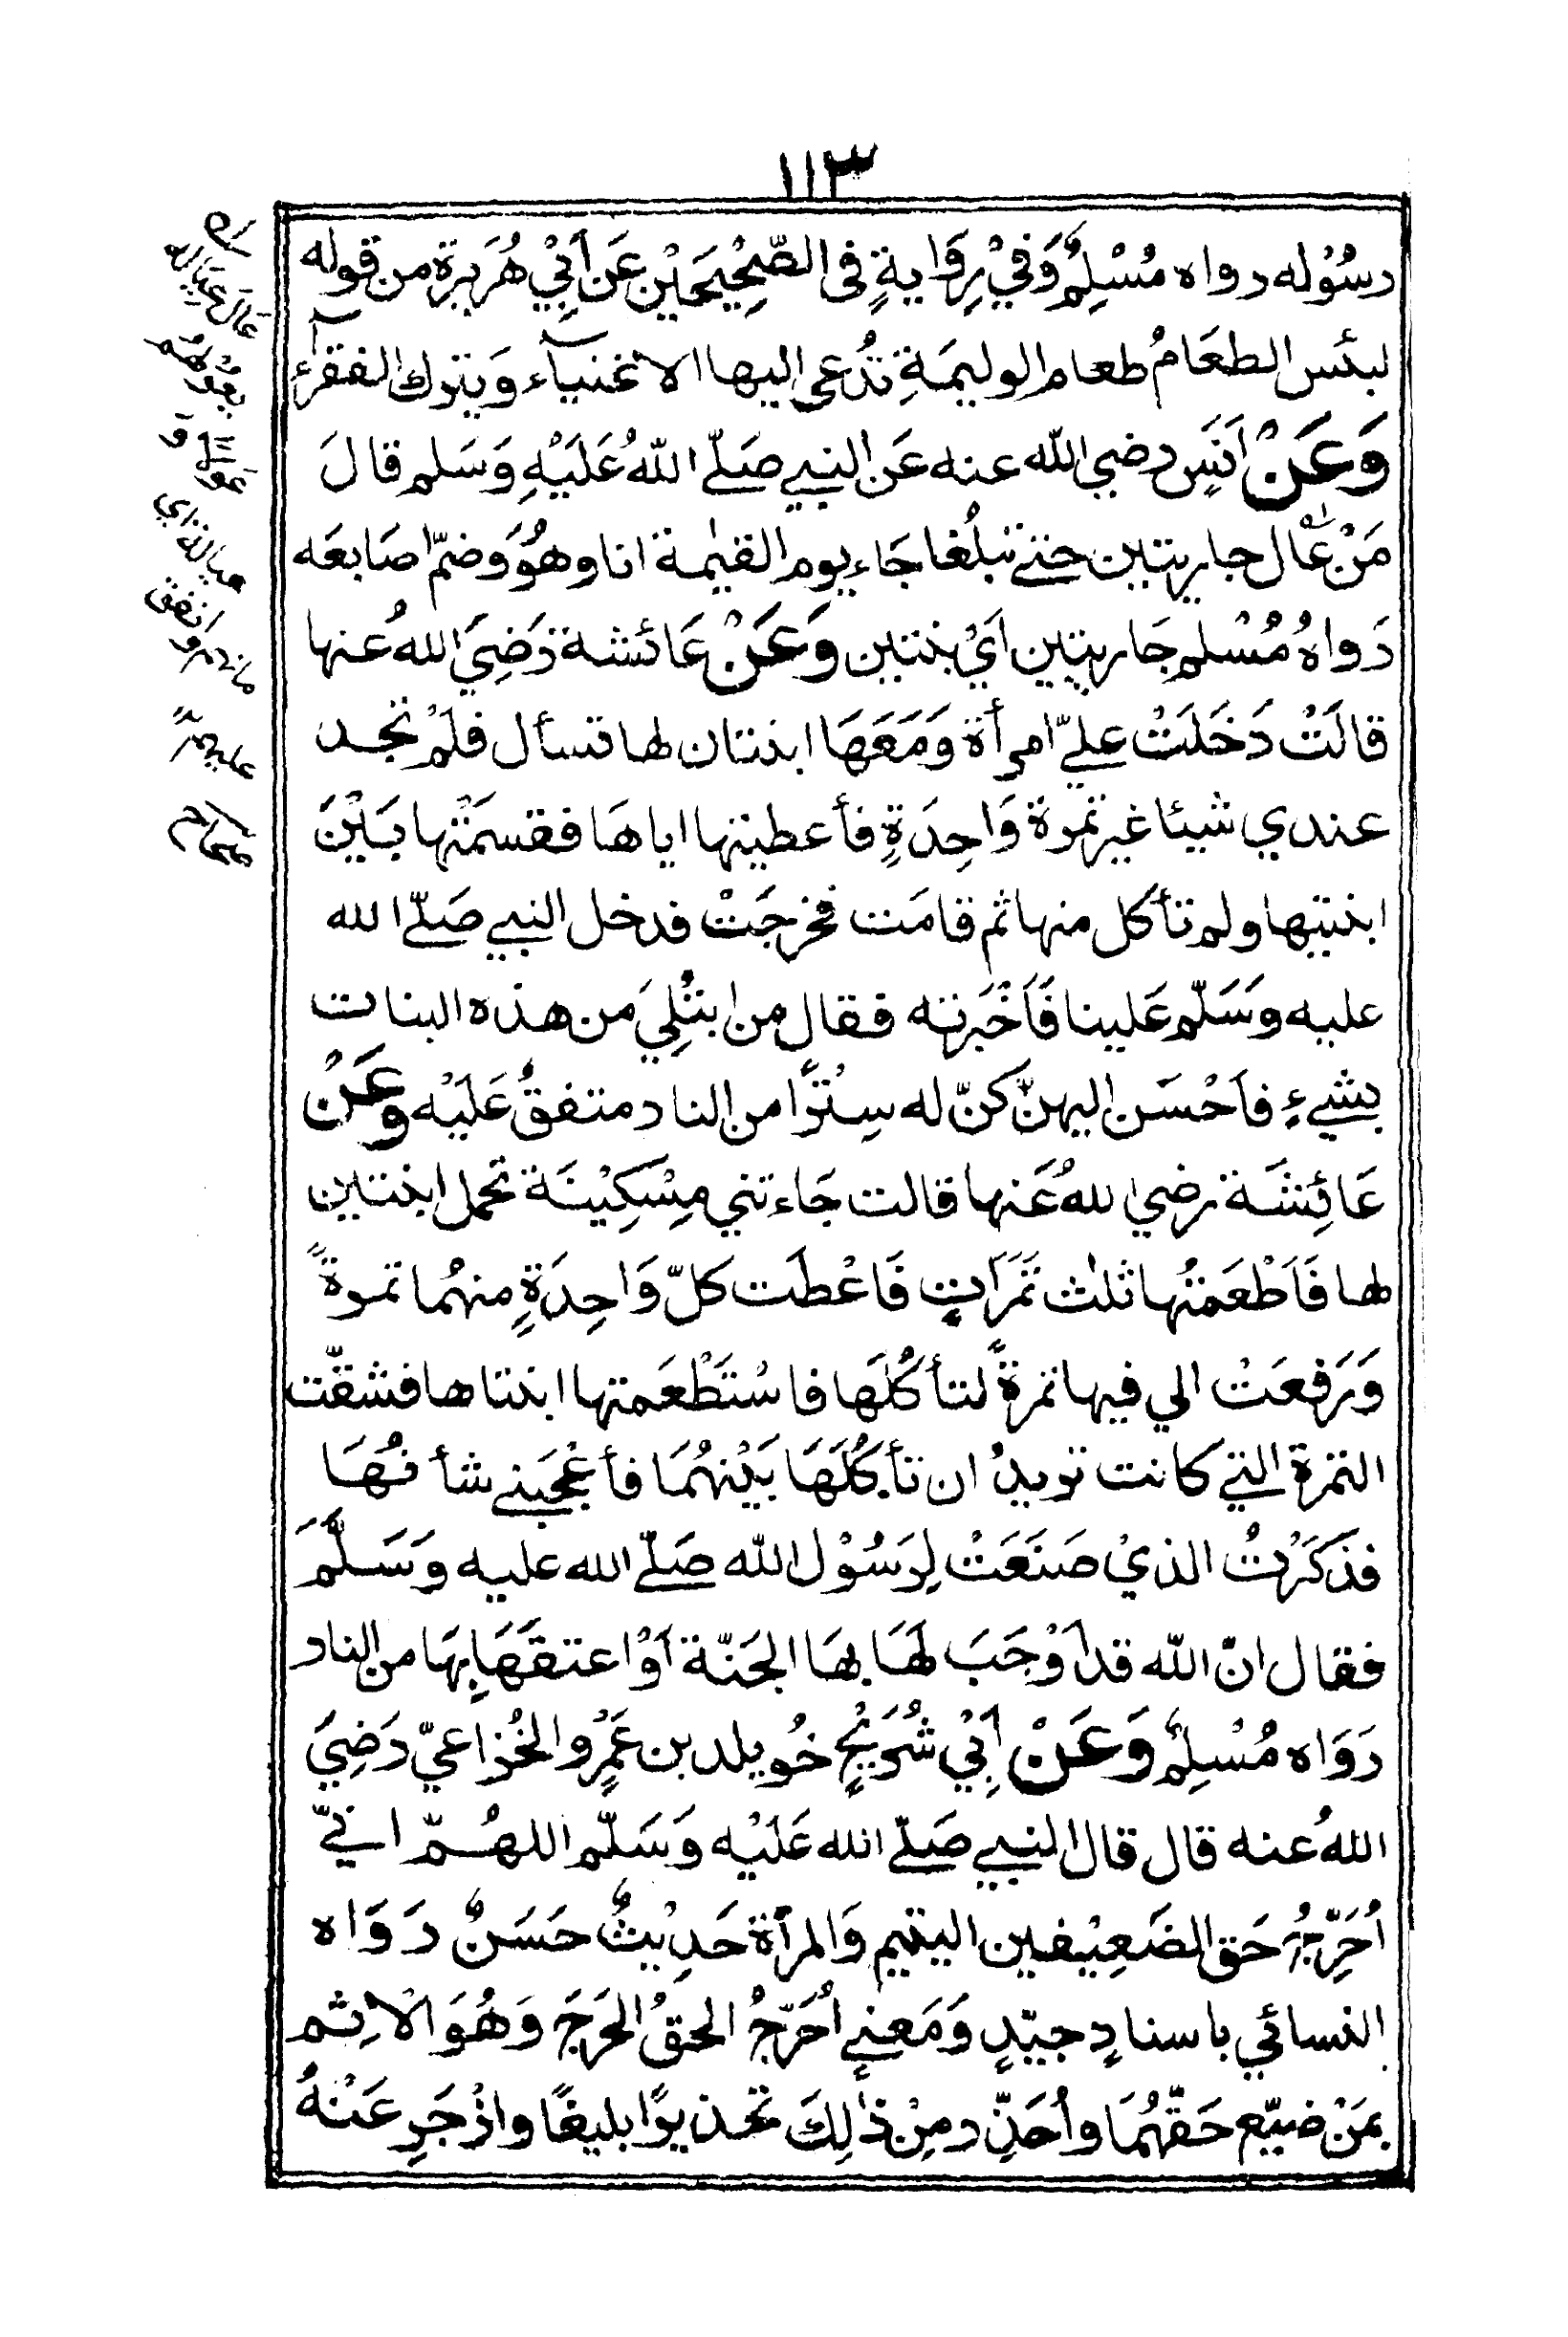 ١١٣
رسُوْله رواه مُسْلِمٌ وَفِيْ رِوَايةٍ فى الصَّحِيْحَيْن عَن أَبِيْ هُرَيرة من قوله
لبئس الطعَامُ طعام الوليمَةِ تُدْعى اليها الاغنيآء وَيترك الفقرآء
وَعَنْ اَنَسٍ رضي الله عنه عَن النبي صَلّے اللهُ عَلَيْهِ وَسَلم قالَ
مَنْ عَال جاريتين حتے تبلُغا جَاء يوم القيٰمة انا وهُوَ وضمّ اصَابعَه
رَواهُ مُسْلم جَاريتين اَيْ بنتين وَعَنْ عَائشة رَضِيَ اللهُ عنها
قالَتْ دَخَلَتْ عليّ امرأة وَمَعَهَا ابنتان لها تسأل فلَمْ تجد
عندي شيئا غير تمرة وَاحِدَةٍ فأعطيتها اياهَا فقسمَتْها بَيْنَ
ابنتيها ولم تأكل منها ثم قامَت فخرجَتْ فدخل النبي صَلّے الله
عليه وَسَلّم عَلينا فَاَخْبَرته فقال من ابتُلِيَ من هذه البنات
بشيءٍ فاَحْسَن اليهنّ كنّ له سِتْرًا من النار متفقٌ عَلَيْه وعَنْ
عَائِشَة رضي اللهُ عَنها قالت جَاءتني مِسْكِيْنَة تحمل ابنتين
لها فَاَطْعَمتُها ثلٰث تَمَرَاتٍ فَاعْطَت كلّ وَاحِدَةٍ منهُما تمرةً
وَرَفعَتْ الي فيها تمرةً لتأكُلَها فاسْتَطْعَمتها ابنتاها فشقّت
التمرة التي كانت تريدُ ان تأكُلَهَا بَيْنهُمَا فأعْجَبَني شأنُهَا
فذكَرْتُ الذيْ صَنَعَتْ لِرَسُوْل الله صَلّے الله عليه وَسَلَّمَ
فقال انّ الله قد أوْجَبَ لهَا بهَا الجَنّة أوْ اعتقَهَا بِهَا من النار
رَوَاه مُسْلِمٌ وَعَنْ أَبِيْ شُرَيْحٍ خُويلد بن عَمْرٍو الخُزاعيّ رَضِيَ
اللهُ عنه قال قال النبي صَلّے الله عَلَيْه وَسَلّم اللهُمّ انّيْ
اُحَرِّجُ حَق الضَعِيْفين اليتيم وَالمرأة حَدِيْثٌ حَسَنٌ رَوَاه
النسائي باسنادٍ جيّدٍ وَمَعنے اُحَرّجُ الحقُ الحَرَجَ وَهُوَ الاِثم
بمَنْ ضيّع حَقّهُمَا واُحَذِّر مِنْ ذٰلِكَ تحذيرًا بليغًا وازْجَرِ عَنْهُ
عَالَ عيَاله
يعُولهُم